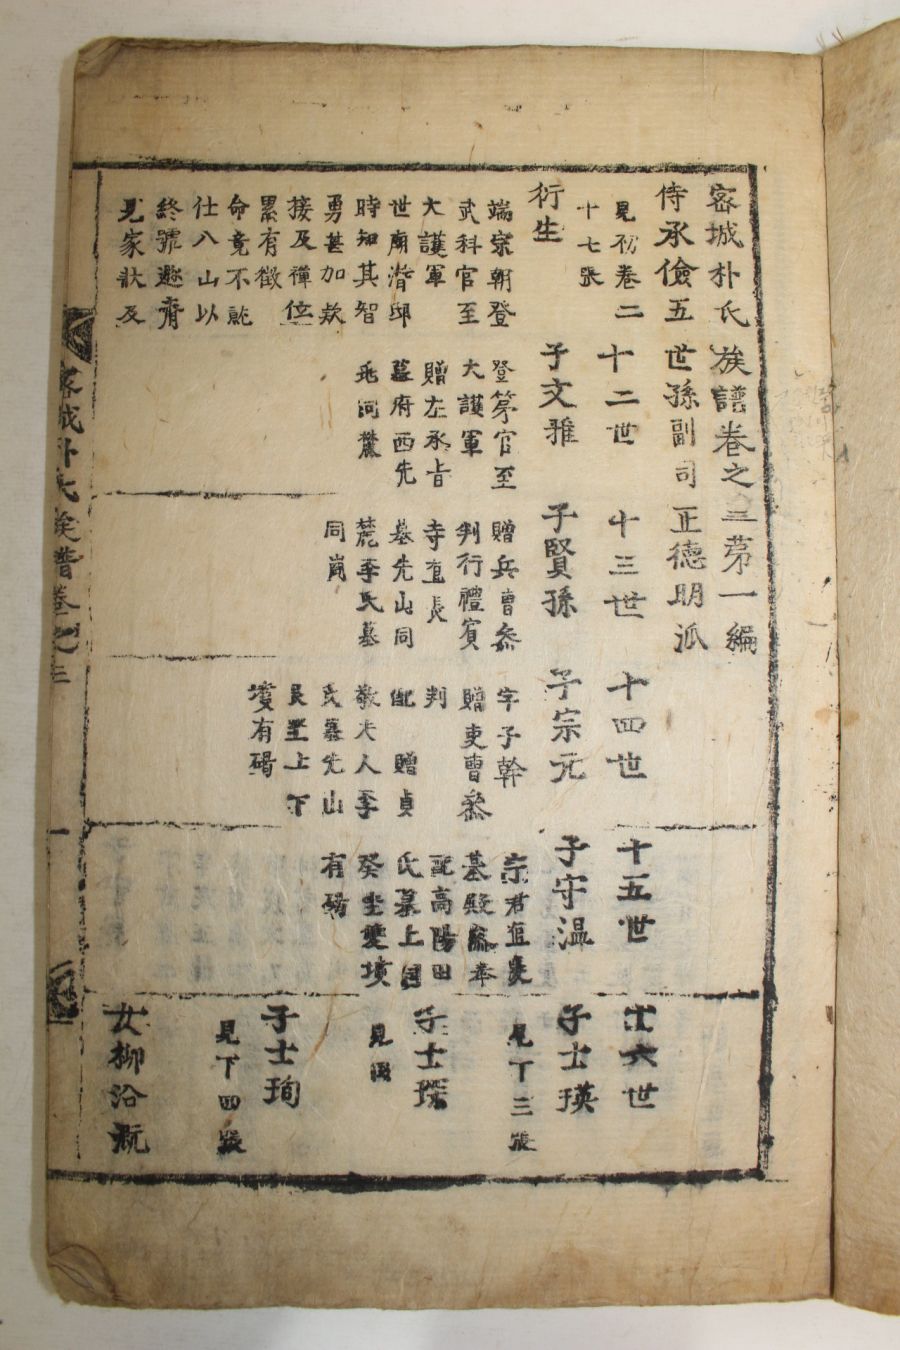 密城朴氏族譜卷之三第一編
侍承儉五世孫副司正德明派
見初卷二
十七張
衍生
端宗朝登
武科官至
大護軍
世廟潛邸
時知其智
勇甚加欽
接及禪位
累有徵
命竟不就
仕入山以
終號遯齊
見家狀及
十二世
子文雅
登第官至
大護軍
贈左承旨
墓府西先
十三世
子賢孫
贈兵曹叅
判行禮賓
寺直長
墓先山同
麓李氏墓
同崗
十四世
子宗元
字子幹
贈吏曹叅
判
配贈貞
敬夫人李
氏墓先山
艮坐上下
墳有碣
十五世
子守温
宗君直長
墓殿叅奉
配高陽田
氏墓上同
癸坐雙墳
有碣
十六世
子士瑛
見下三張
子士琛
見
子士珣
見下四張
女柳沿溉
密城朴氏族譜卷之三